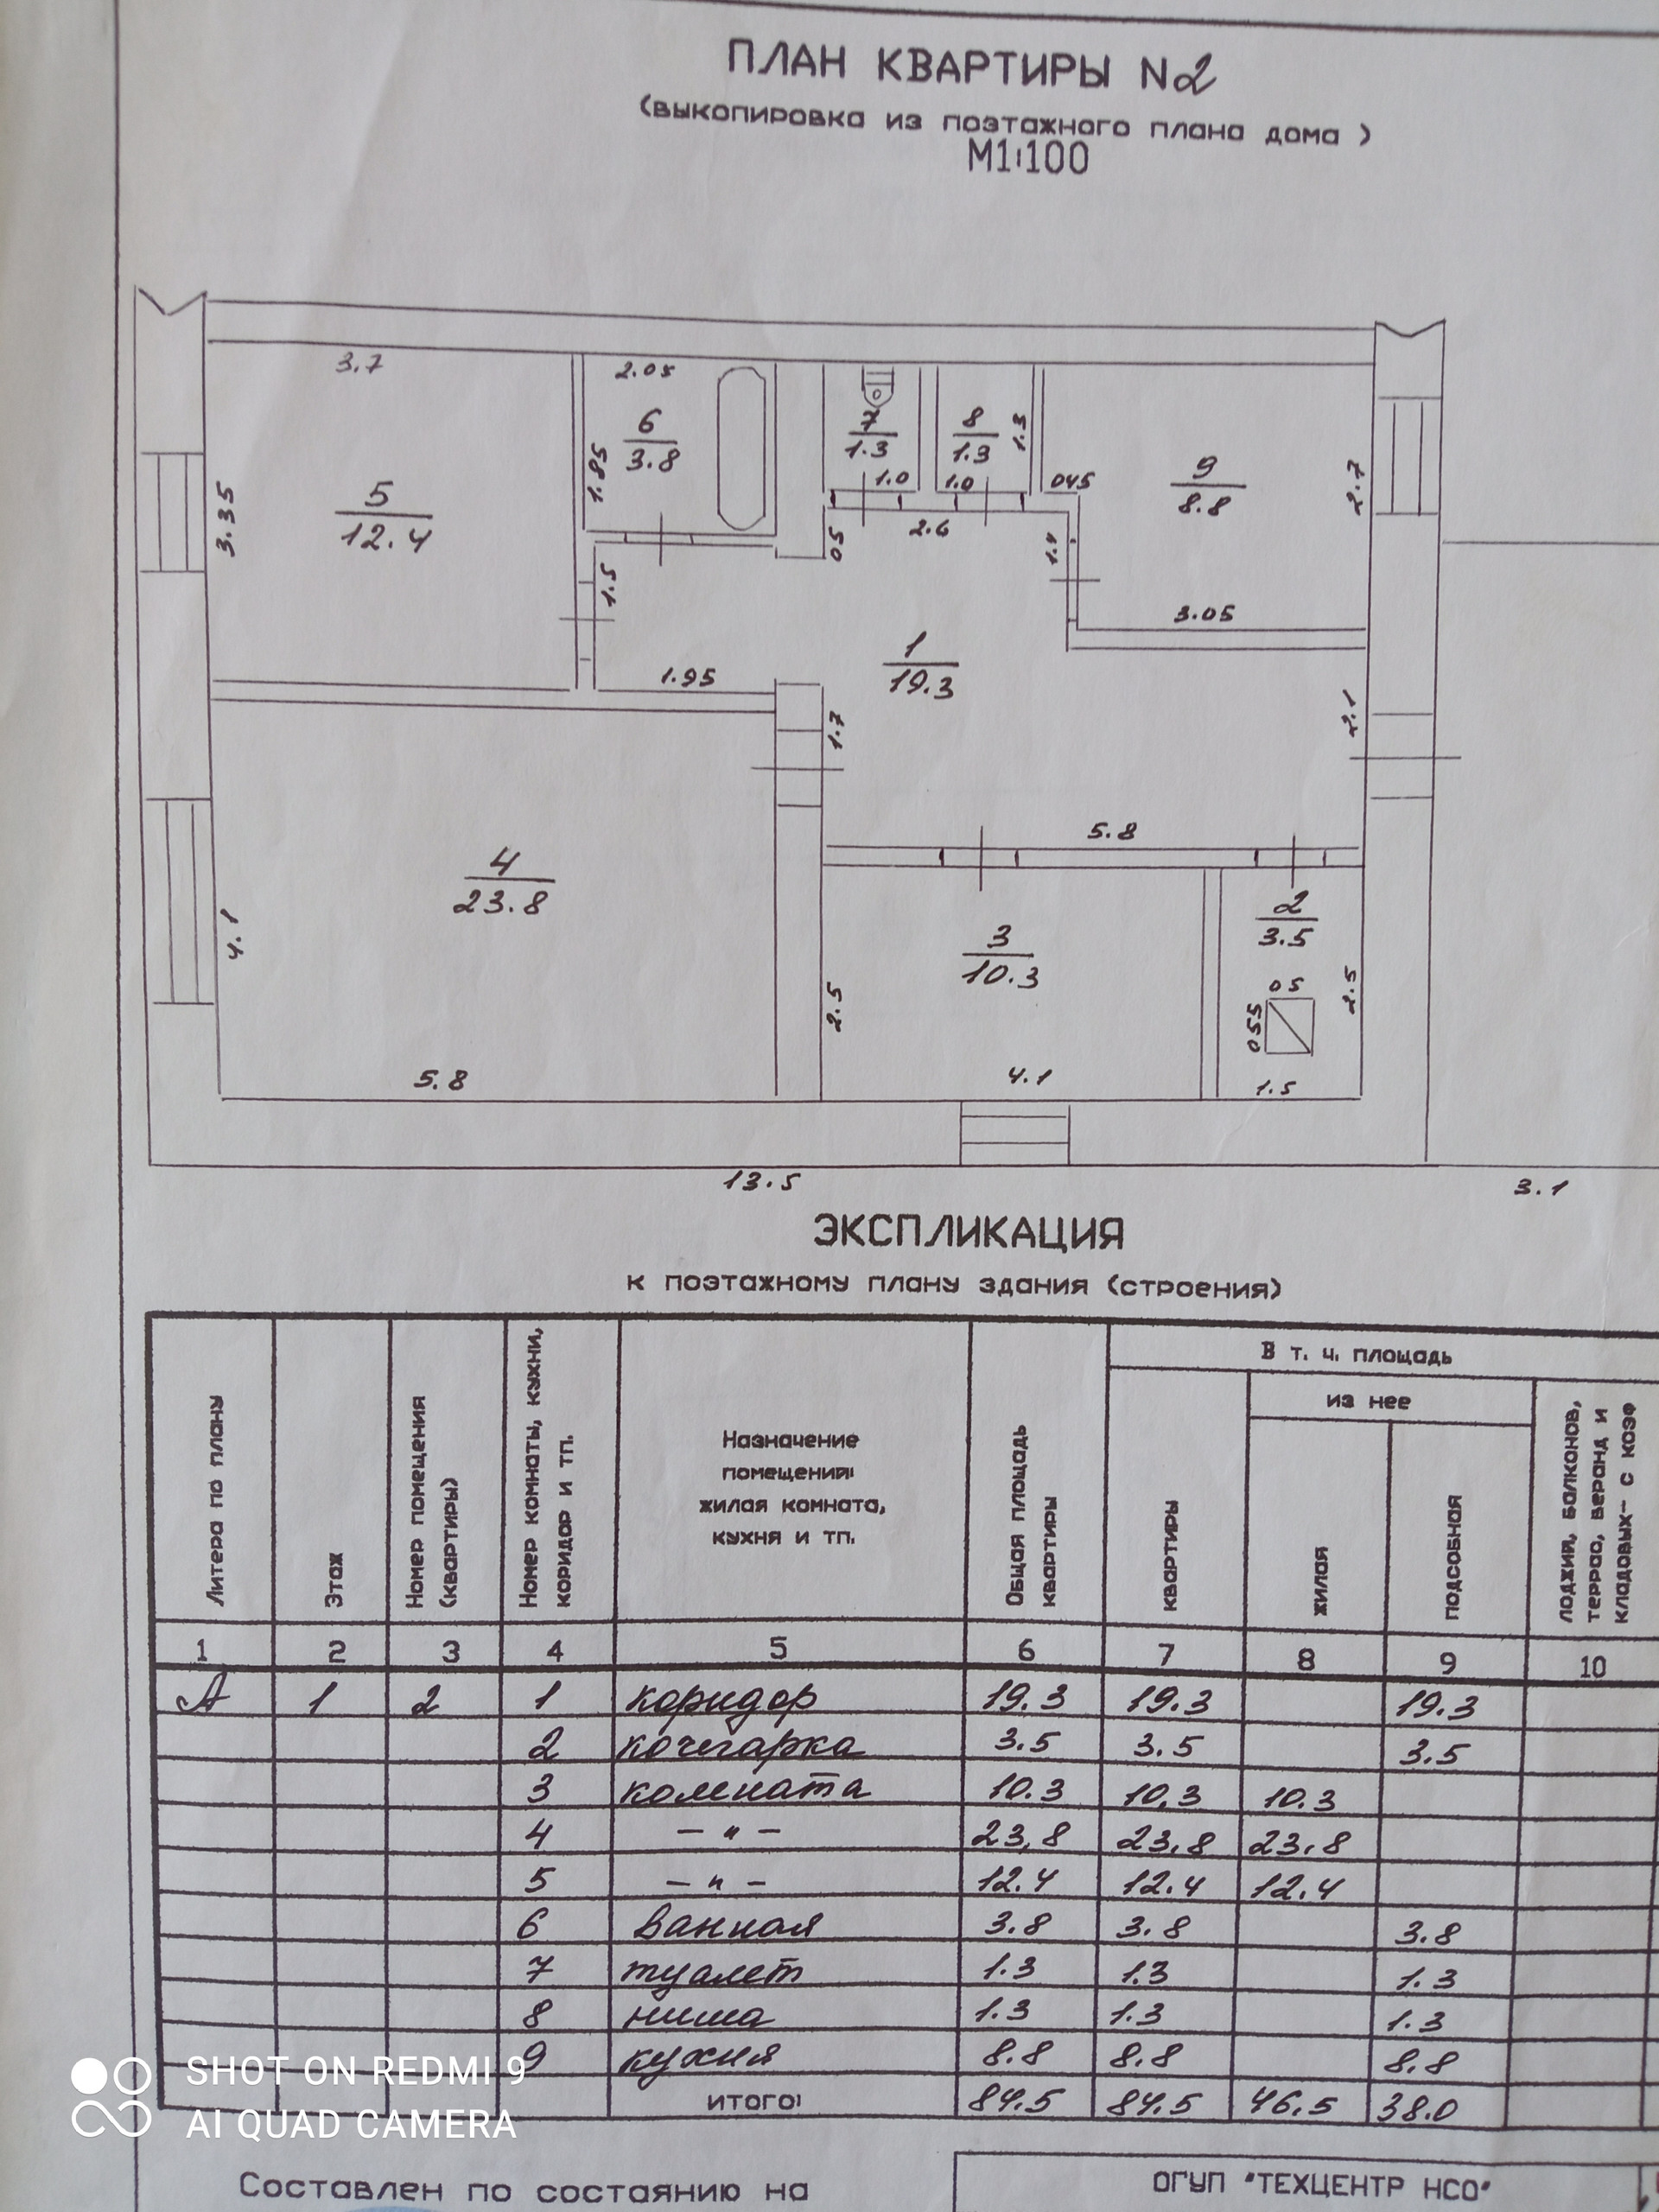 ПЛАН КВАРТИРЫ N2
(выкопировка из поэтажного плана дома )
М1:100
3.7
2.05
6
3.8
1.85
7
1.3
1.0
8
1.3
1.3
1.0
045
9
8.8
2.7
5
12.4
3.35
05
2.6
1.4
1.5
3.05
1.95
1
19.3
1.7
2.1
5.8
4
23.8
4.1
3
10.3
2.5
2
3.5
05
055
2.5
5.8
4.1
1.5
13.5
3.1
ЭКСПЛИКАЦИЯ
к поэтажному плану здания (строения)
Литера по плану
Этаж
Номер помещения
(квартиры)
Номер комнаты, кухни,
коридор и тп.
Назначение
помещения:
жилая комната,
кухня и тп.
Общая площадь
квартиры
В т. ч. площадь
квартиры
из нее
жилая
подсобная
лоджий, балконов,
террас, веранд и
кладовых- с коэф
1 2 3 4 5 6 7 8 9 10
А 1 2 1 коридор 19.3 19.3 19.3
2 кочегарка 3.5 3.5 3.5
3 комната 10.3 10,3 10.3
4 – " – 23,8 23,8 23,8
5 – " – 12.4 12.4 12.4
6 ванная 3.8 3.8 3.8
7 туалет 1.3 1.3 1.3
8 ниша 1.3 1.3 1.3
9 кухня 8.8 8.8 8.8
ИТОГО: 84.5 84.5 46.5 38.0
SHOT ON REDMI 9
AI QUAD CAMERA
Составлен по состоянию на
ОГУП "ТЕХЦЕНТР НСО"